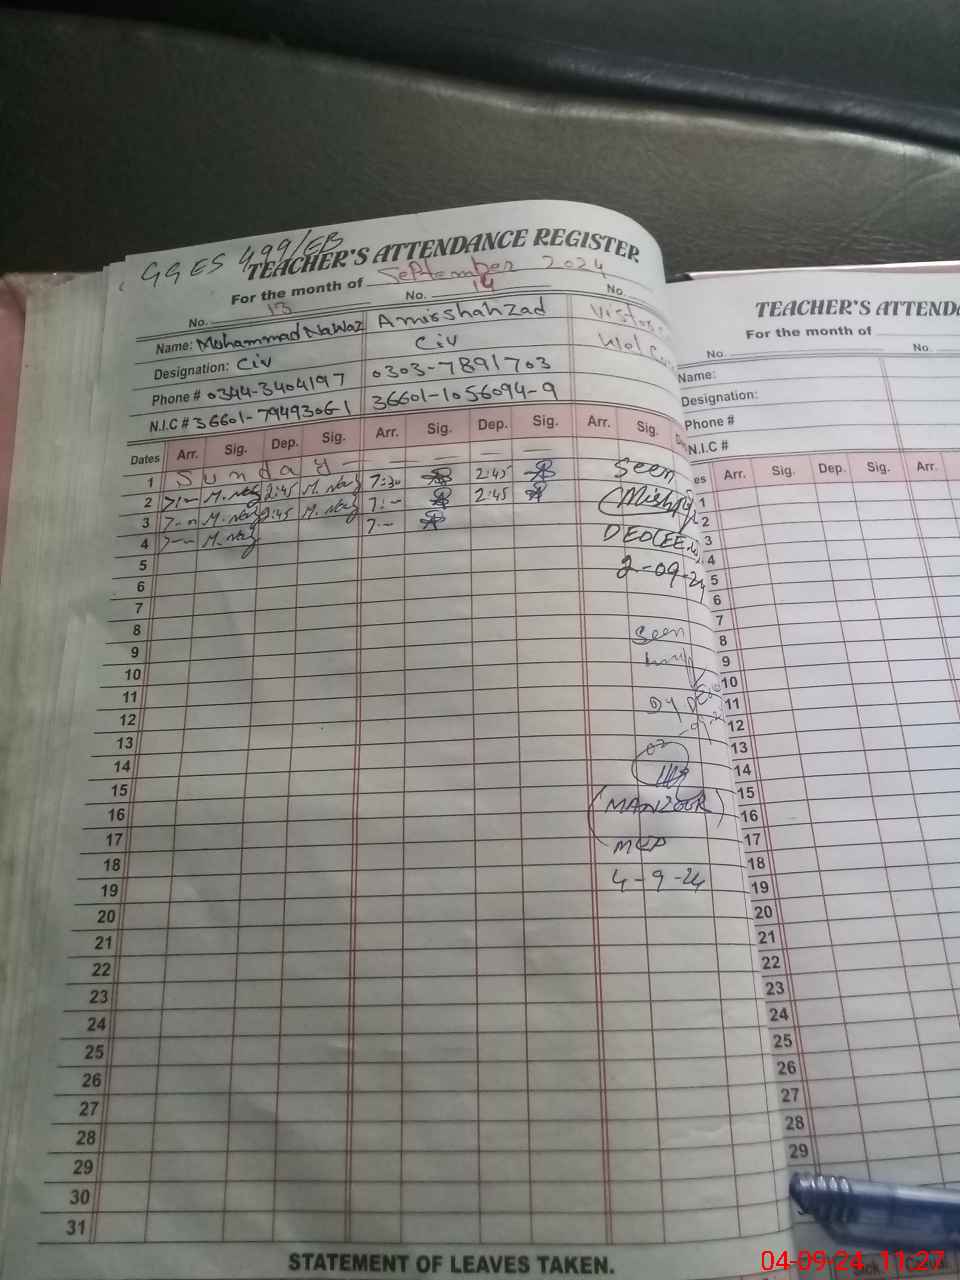 GGES 499/EB
TEACHER'S ATTENDANCE REGISTER
For the month of September 2024
No. 13 No. 14 No.
Name: Mohammad Nawaz Amir Shahzad
Designation: Civ Civ
Phone # 0344-3404197 0303-7891703
N.I.C # 36601-7949306-1 36601-1056094-9
Dates Arr. Sig. Dep. Sig. Arr. Sig. Dep. Sig. Arr. Sig.
1 Sunday
2 7:- M. Naz 2:45 M. Naz 7:30 2:45
3 7- M. Naz 2:45 M. Naz 7:- 2:45
4 7- M. Naz 7:-
5
6
7
8
9
10
11
12
13
14
15
16
17
18
19
20
21
22
23
24
25
26
27
28
29
30
31
Seen
2-09-24
Seen
(MANZOOR)
4-9-24
STATEMENT OF LEAVES TAKEN.
TEACHER'S ATTENDA
For the month of
No. No.
Name:
Designation:
Phone #
N.I.C #
es Arr. Sig. Dep. Sig. Arr.
1
2
3
4
5
6
7
8
9
10
11
12
13
14
15
16
17
18
19
20
21
22
23
24
25
26
27
28
29
04-09-24 11:27